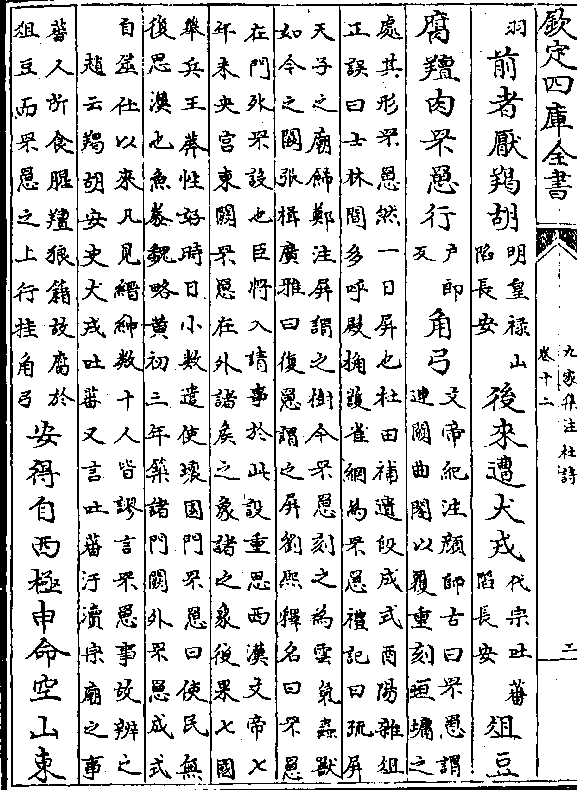 欽定四庫全書
九家集注杜詩
卷十二
二
羽
前者厭羯胡
明皇禄山
陷長安
後來遭犬戎
代宗吐蕃
陷長安
俎豆
腐羶肉罘罳行
户郎
反
角弓
文帝紀注顔師古曰罘罳謂
連闕曲閣以覆重刻垣墉之
處其形罘罳然一曰屏也杜田補遺段成式酉陽雜俎
正誤曰士林間多呼殿桷護雀網為罘罳禮記曰疏屏
天子之廟飾鄭注屏謂之樹今罘罳刻之為雲氣蟲獸
如今之闕張楫廣雅曰復罳謂之屏劉熙釋名曰罘罳
在門外罘設也臣將入請事於此設重思西漢文帝七
年未央宫東闕罘罳在外諸矦之象諸之象後果七國
舉兵王莽性好時日小數遣使壞園門罘罳曰使民無
復思漢也魚豢魏略黄初三年築諸門闕外罘罳成式
自筮仕以來凡見縉紳數十人皆謬言罘罳事故辨之
趙云羯胡安史犬戎吐蕃又言吐蕃汙瀆宗廟之事
蕃人所食腥羶狼籍故腐於
俎豆而罘罳之上行挂角弓
安得自西極申命空山東